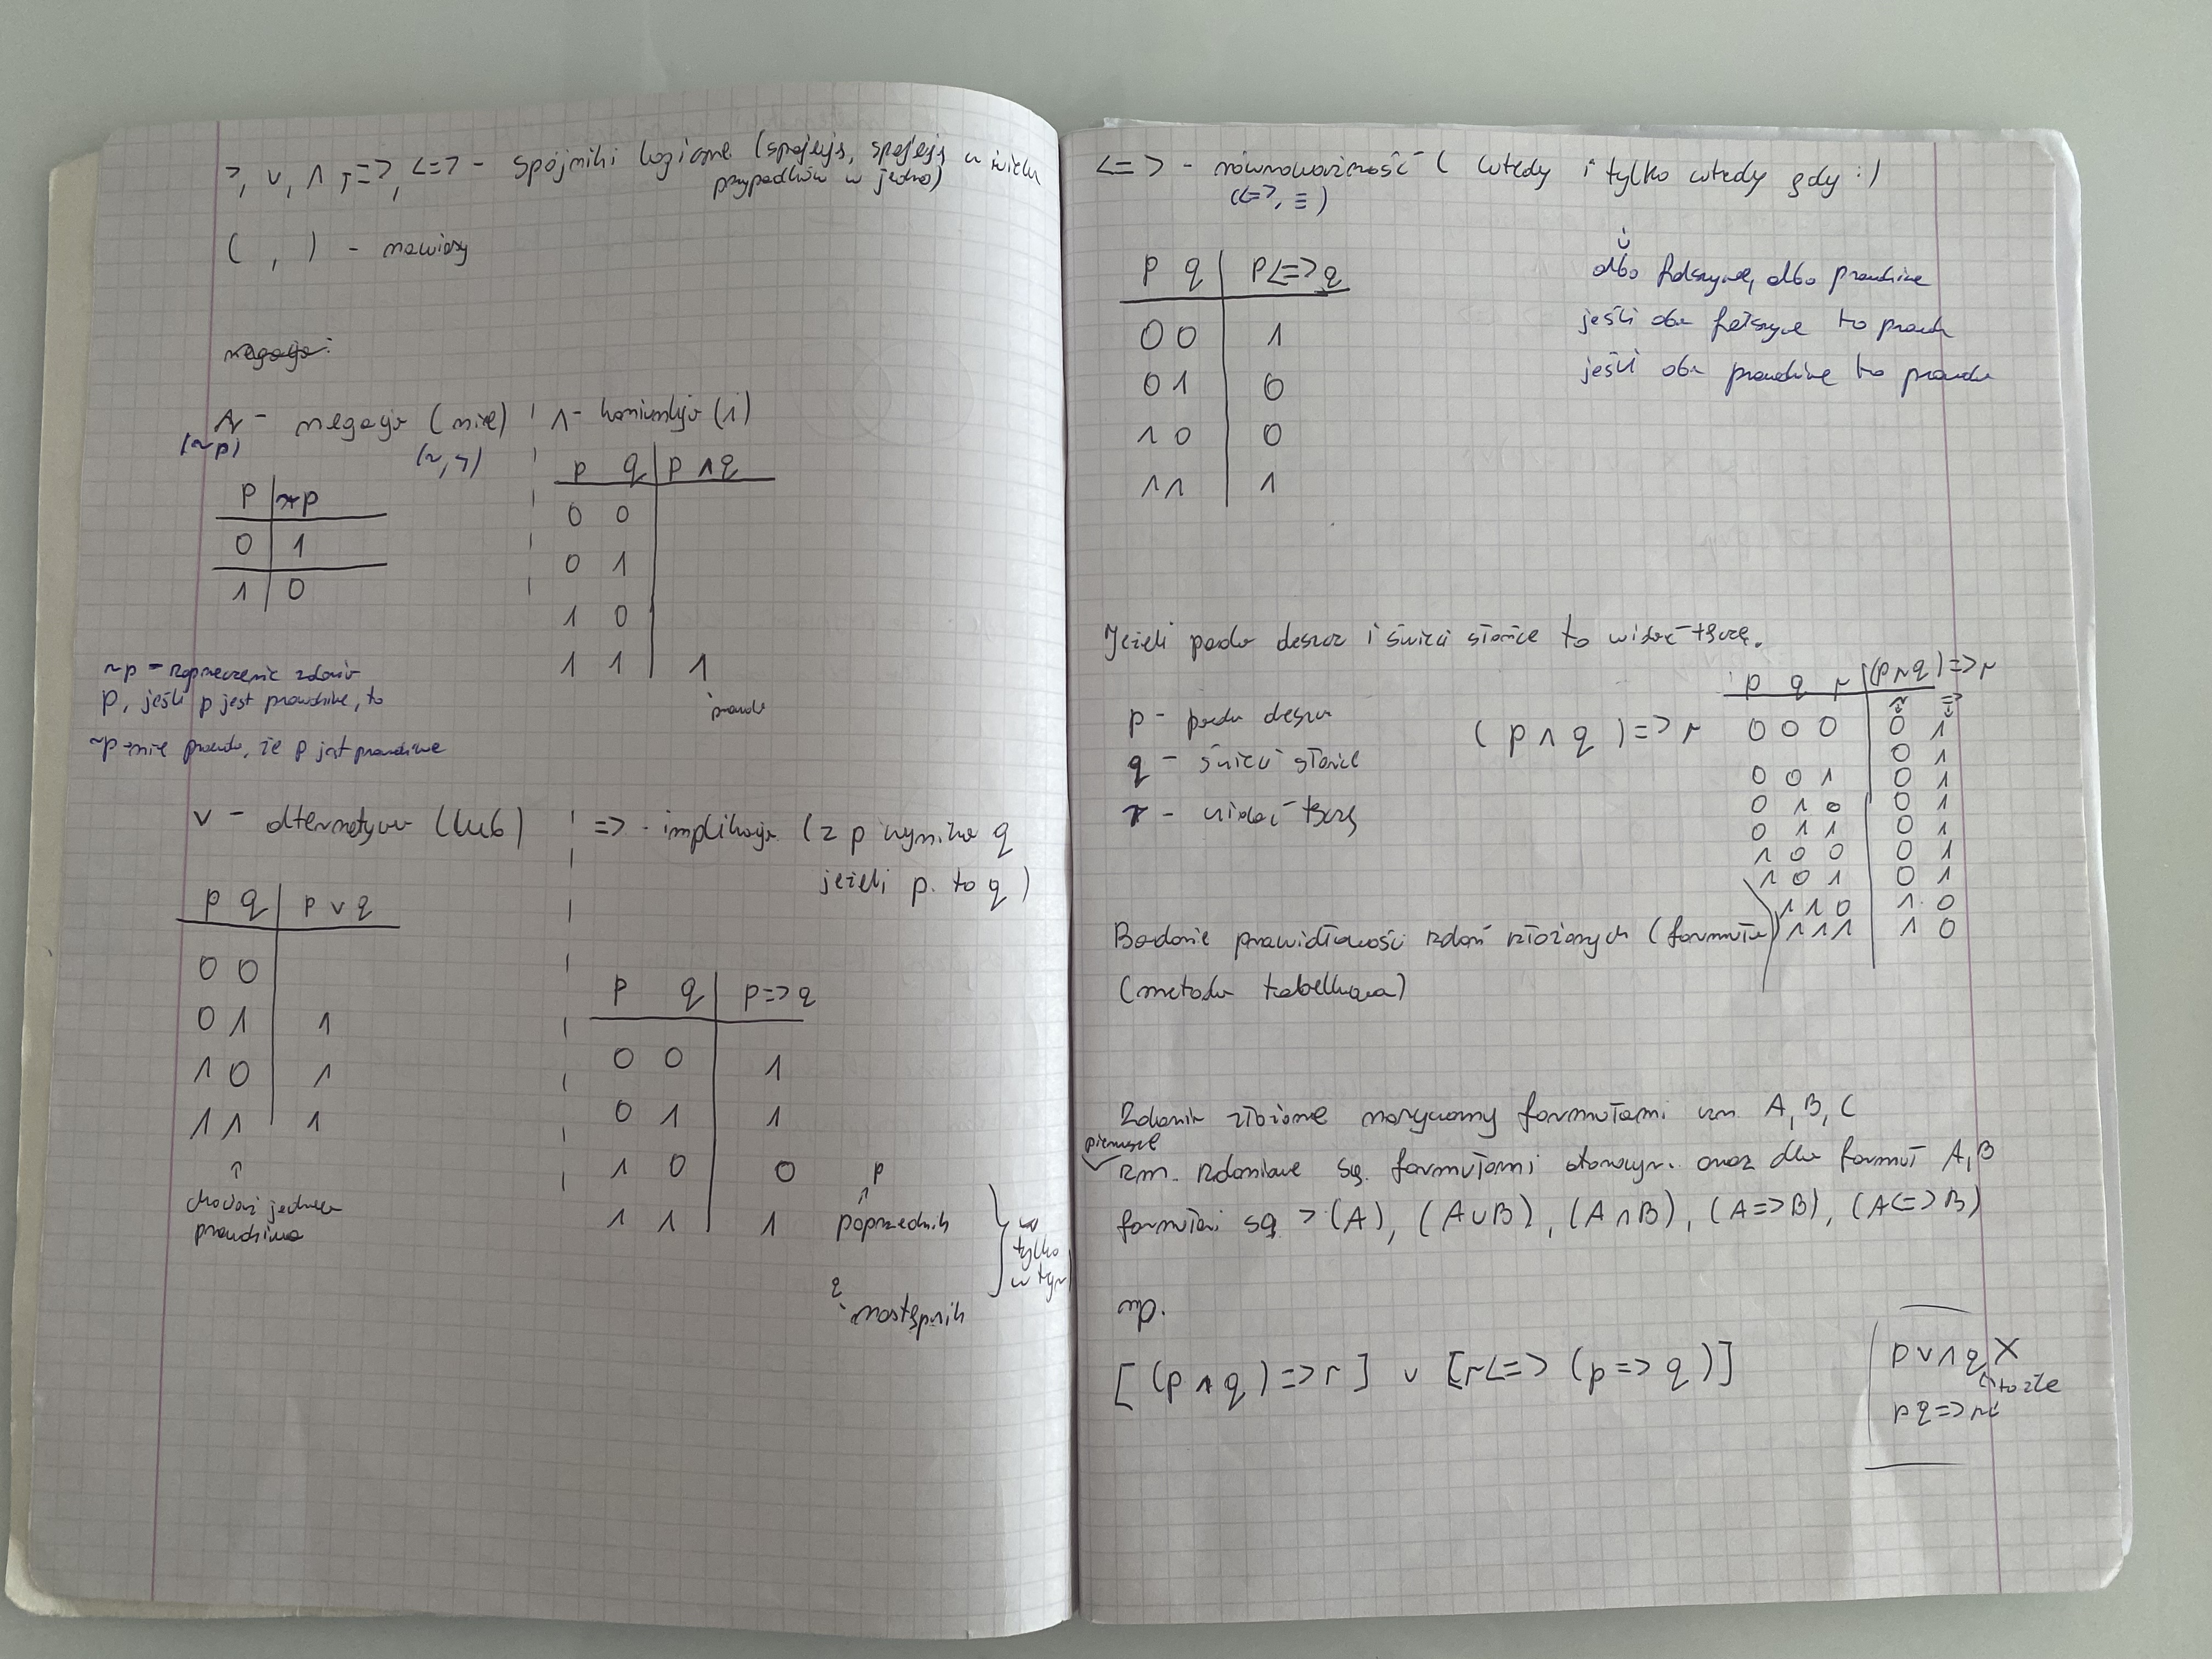 >, ∨, ∧, =>, <=> - spójniki logiczne (spajają, spajają w wielu
przypadków w jedno)
( , ) - nawiasy
negacja:
~ - negacja (nie)
(~p)
(~, ¬)
p | ~p
0 | 1
1 | 0
∧ - koniunkcja (i)
p q | p ∧ q
0 0 |
0 1 |
1 0 |
1 1 | 1
prawda
~p = zaprzeczenie zdania
p, jeśli p jest prawdziwe, to
~p → nie prawda, że p jest prawdziwe
∨ - alternatywa (lub)
p q | p ∨ q
0 0 |
0 1 | 1
1 0 | 1
1 1 | 1
↑
chociaż jedno
prawdziwe
=> - implikacja (z p wynika q
jeżeli p. to q)
p q | p => q
0 0 | 1
0 1 | 1
1 0 | 0
1 1 | 1
p
↑
poprzednik
q
następnik
to
tylko
w tym
<=> - równoważność (wtedy i tylko wtedy gdy :)
(<=>, ≡)
p q | p <=> q
0 0 | 1
0 1 | 0
1 0 | 0
1 1 | 1
albo fałszywe, albo prawdziwe
jeśli oba fałszywe to prawda
jeśli oba prawdziwe to prawda
Jeżeli pada deszcz i świeci słońce to widać tęczę.
p - pada deszcz
q - świeci słońce
r - widać tęczę
(p ∧ q) => r
p q r | (p ∧ q) => r
∧ =>
0 0 0 | 0 1
0 1
0 0 1 | 0 1
0 1 0 | 0 1
0 1 1 | 0 1
1 0 0 | 0 1
1 0 1 | 0 1
1 1 0 | 1 0
1 1 1 | 1 0
Badanie prawidłowości zdań złożonych (formuła)
(metoda tabelkowa)
Zdania złożone nazywamy formułami ozn. A, B, C
pierwsze
zm. zdaniowe są formułami oraz dla formuł A, B
formułami są > (A), (A ∪ B), (A ∩ B), (A => B), (A <=> B)
np.
[(p ∧ q) => r] ∨ [r <=> (p => q)]
p ∨ ∧ q X
to złe
p q => r